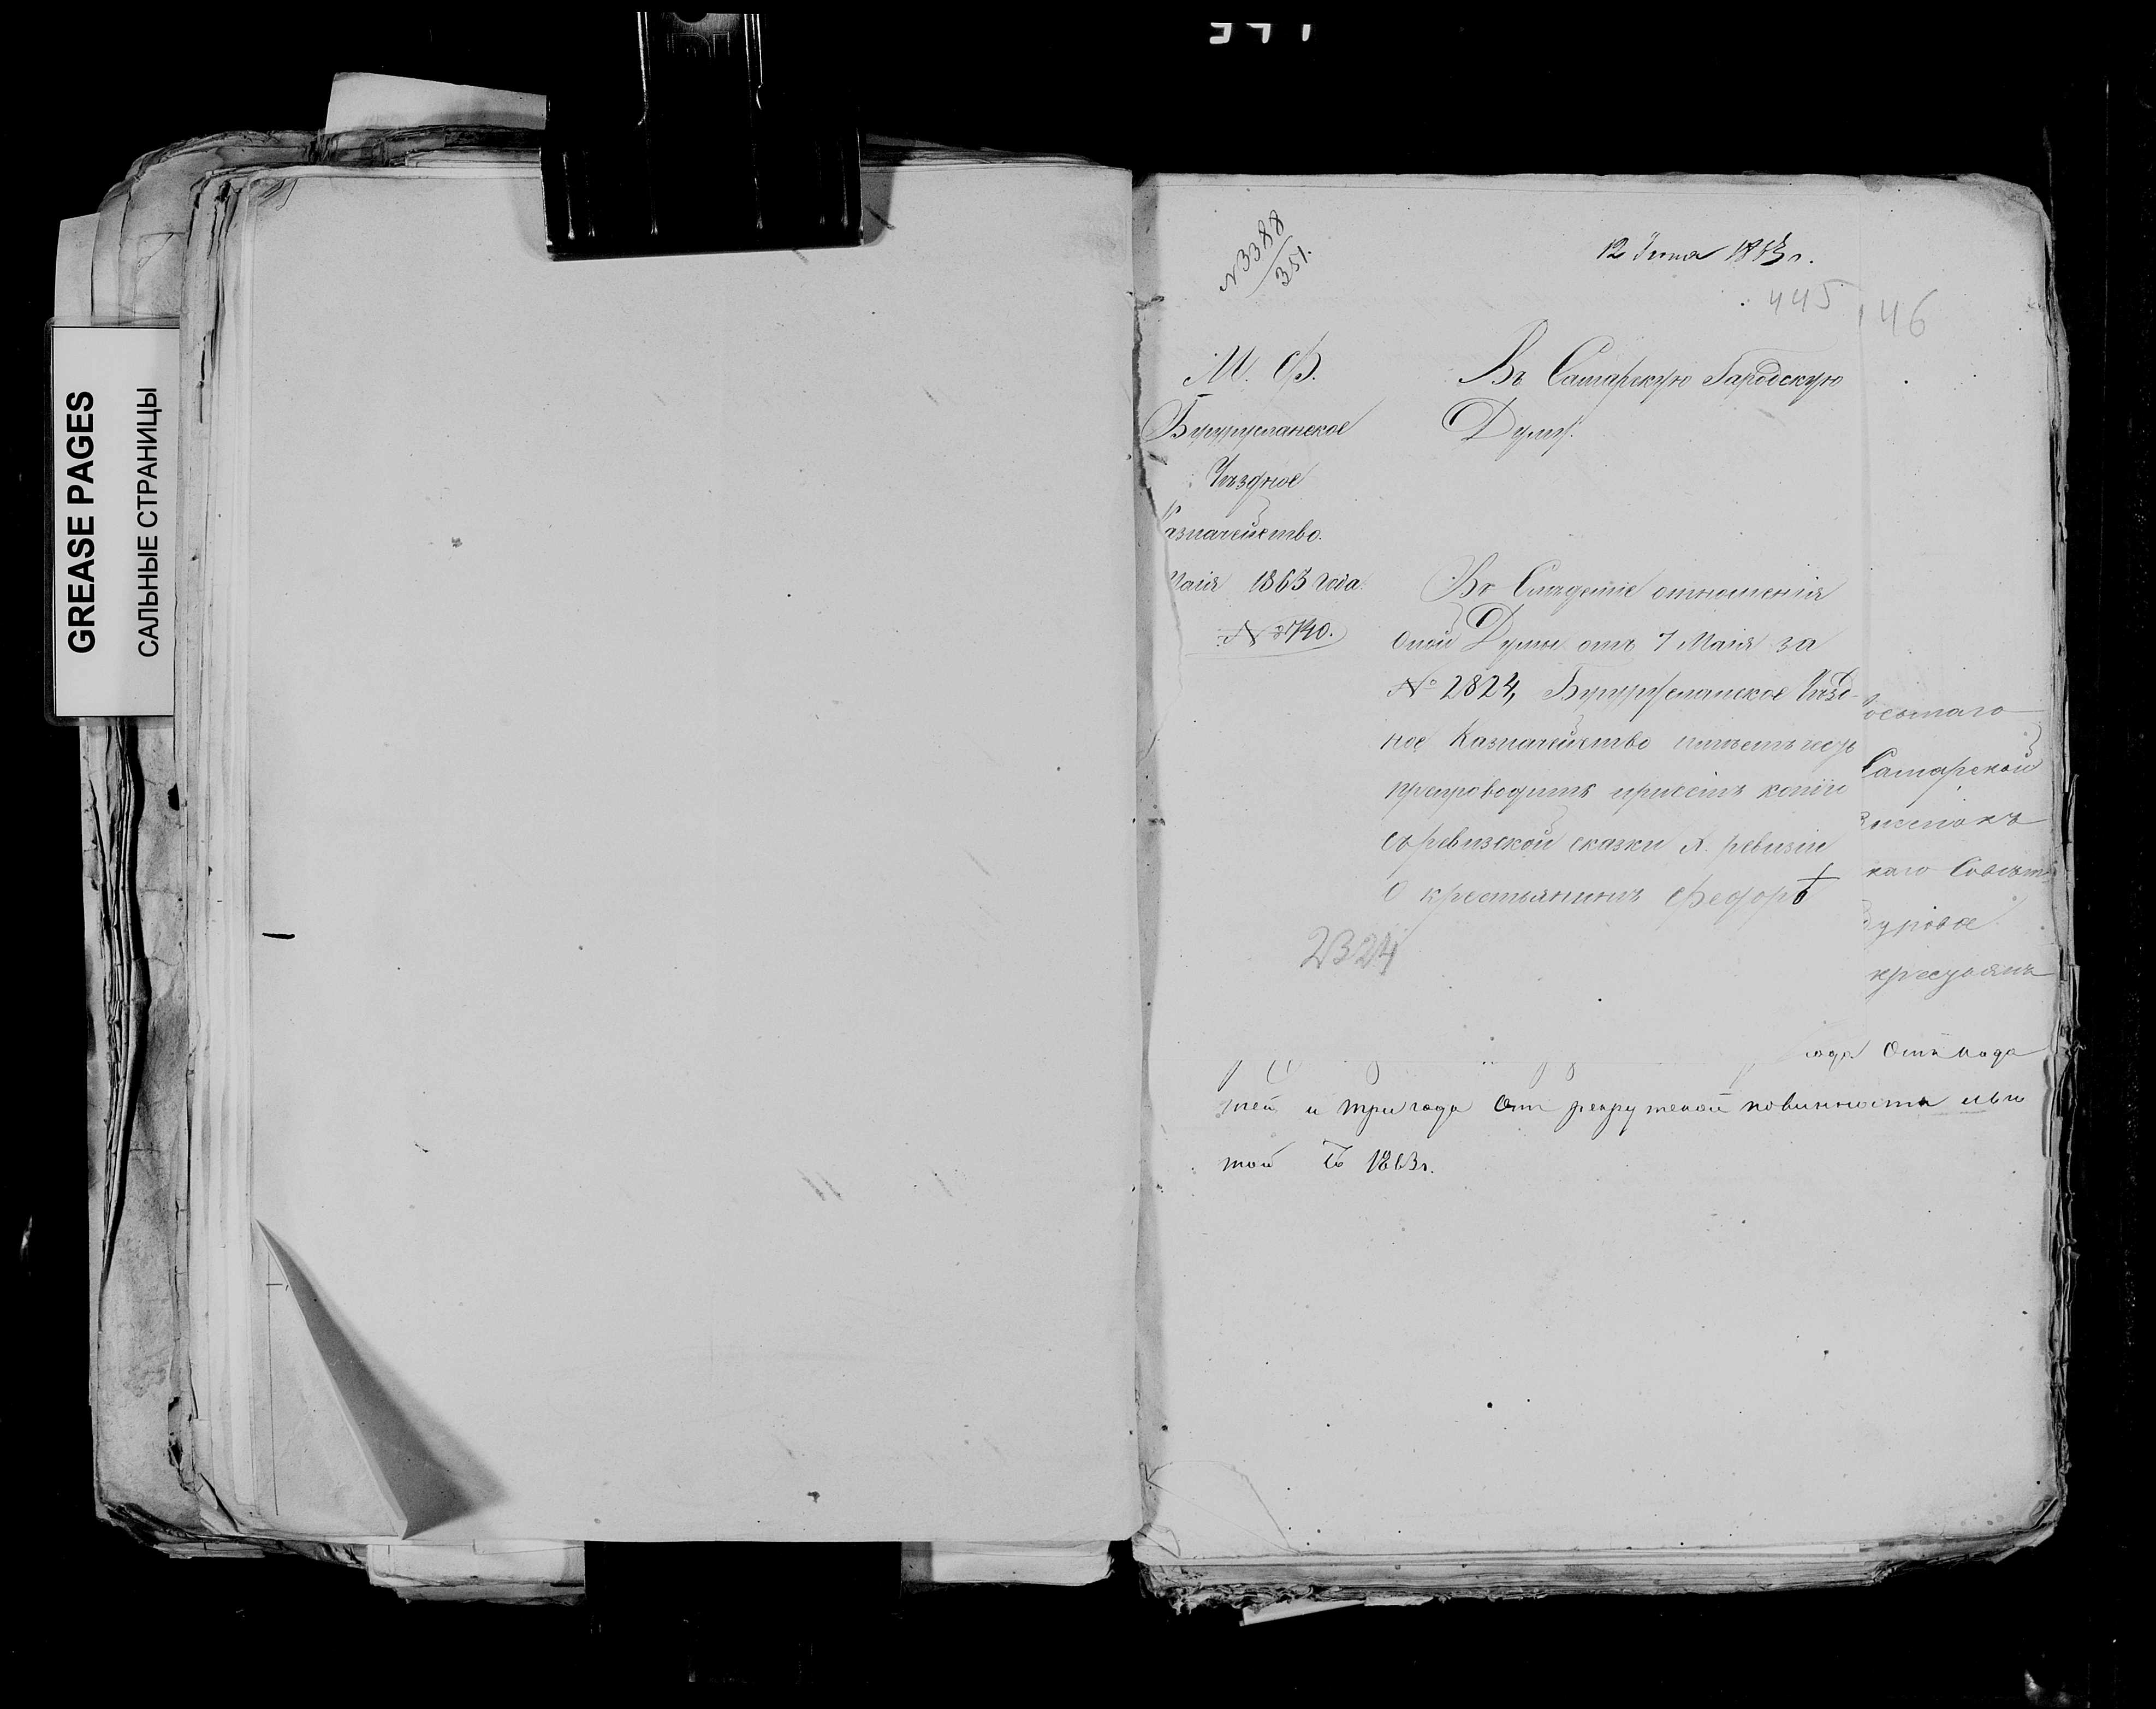 GREASE PAGES
САЛЬНЫЕ СТРАНИЦЫ
№ 3388
351.
12 Iюня 1863 г.
445
146
М. Ф.
Бугурусланское
Уѣздное
азначейство.
Маія 1863 года.
№ 3740.
Въ Самарскую Городскую
Думу.
Въ Слѣдствіе отношенія
Оной Думы отъ 7 Маія за
№ 2824, Бугурусланское Уѣзд-
ное Казначейство имѣетъ честь
препроводить присемъ копіи
съ ревизской сказки X. ревизіи
О крестьянинѣ Федорѣ
2324
Самарской
крестьянъ
года Отъ пода
тей и три года Отъ рекрутской повинности льго
той Съ 1863 г.